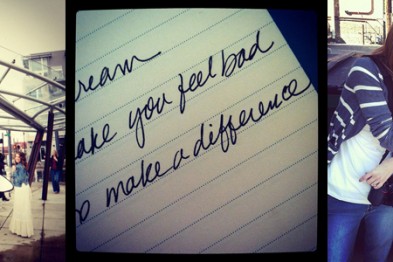 ream
ake you feel bad
o make a difference